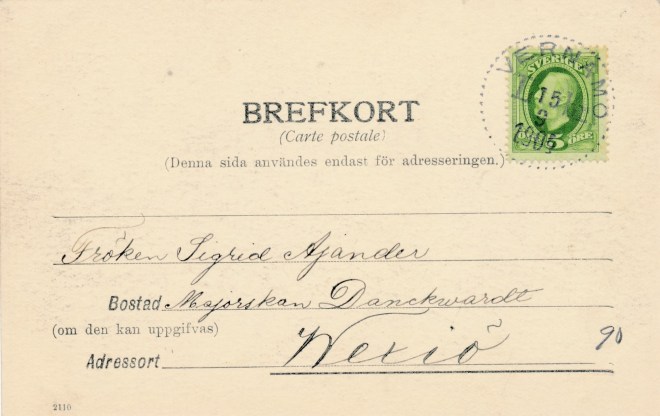 VERNAMO
SVERIGE
15
9
1905
5 ÖRE
BREFKORT
(Carte postale)
(Denna sida användes endast för adresseringen.)
Fröken Sigrid Ajander
Bostad Majorskan Danckwardt
(om den kan uppgifvas)
Adressort Wexiö
90
2110